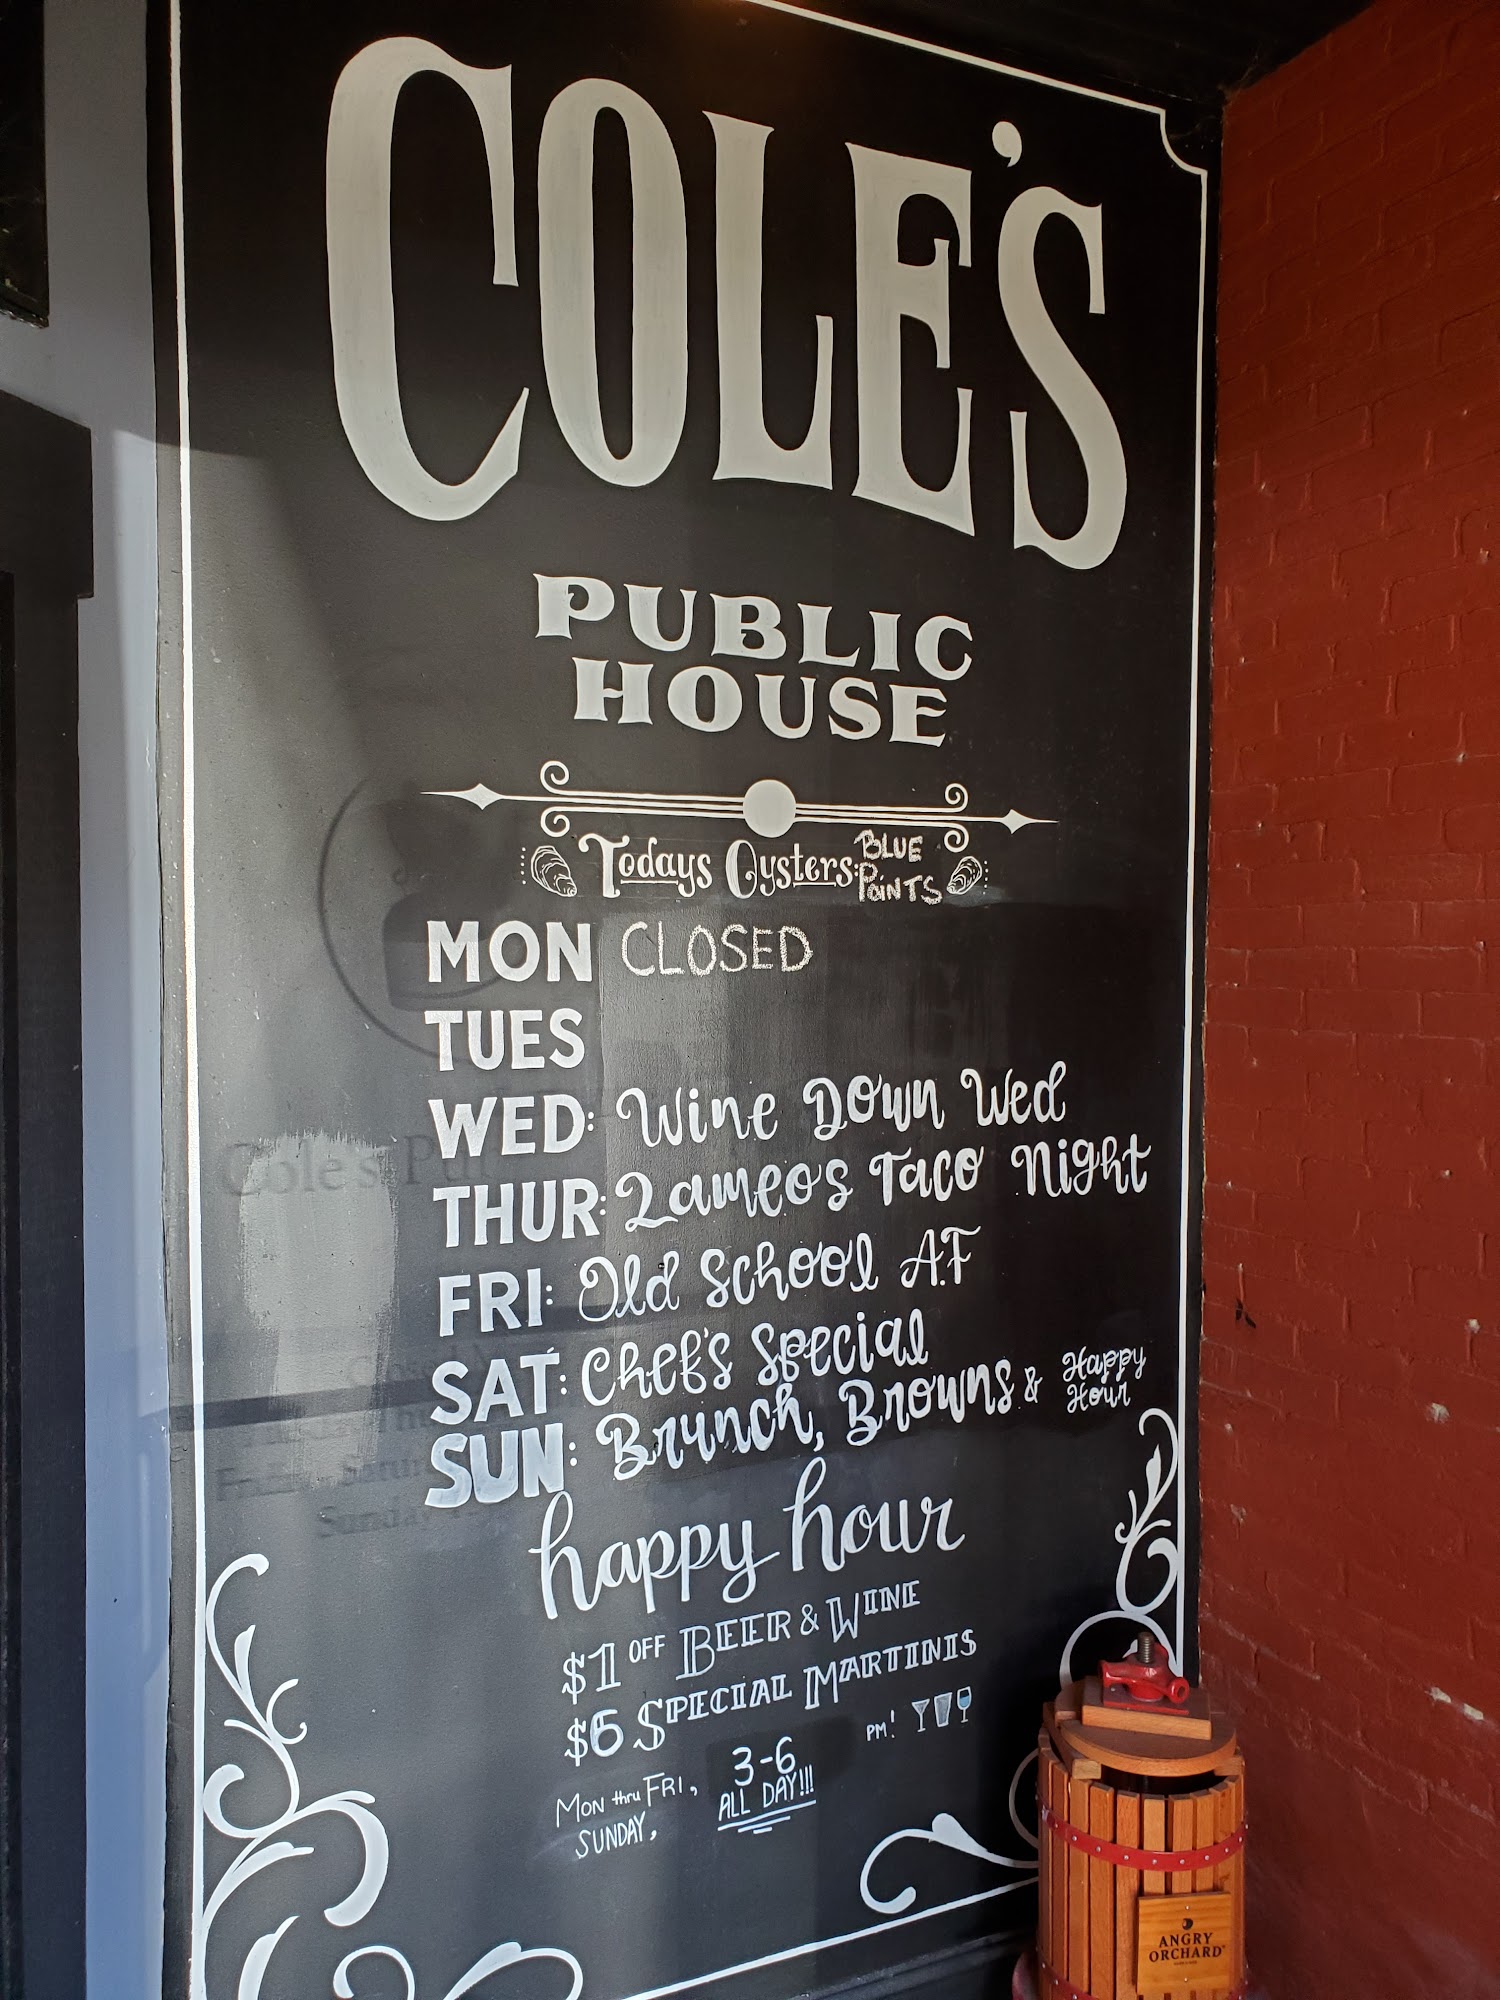 COLE'S
PUBLIC
HOUSE
Todays Oysters: BLUE
POINTS
MON CLOSED
TUES
WED: Wine Down Wed
THUR: Lameo's Taco Night
FRI: Old School A.F
SAT: Chef's Special
SUN: Brunch, Browns & Happy
Hour
happy hour
$1 OFF BEER & WINE
$6 SPECIAL MARTINIS
MON thru FRI, 3-6 PM!
SUNDAY, ALL DAY!!!
ANGRY
ORCHARD